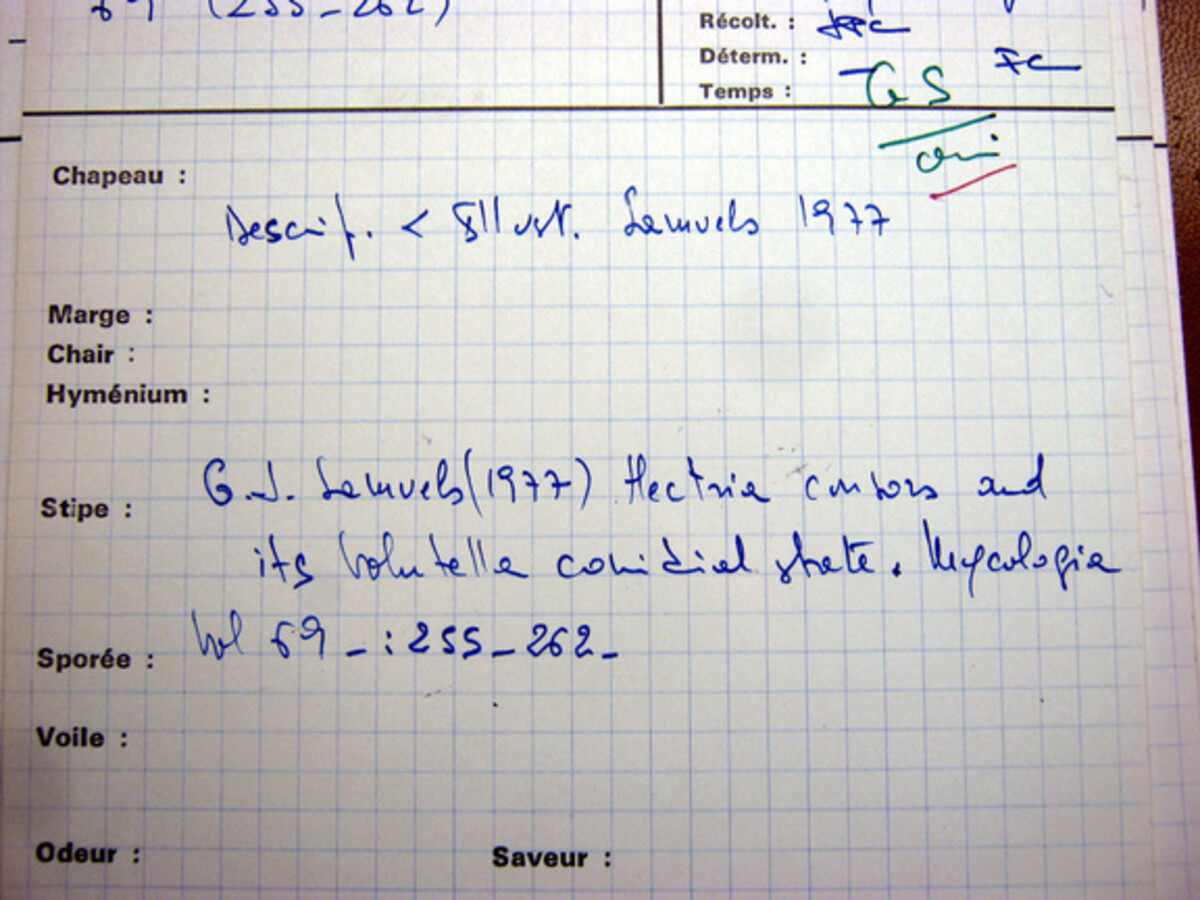 69 (255-262)
Récolt. :
Déterm. : FC
Temps : GS
oui
Chapeau :
Descrip. < Illust. Samuels 1977
Marge :
Chair :
Hyménium :
G.J. Samuels (1977) Nectria consors and
Stipe :
its Volutella conidial state. Mycologia
Vol 69 - : 255-262-
Sporée :
Voile :
Odeur : Saveur :